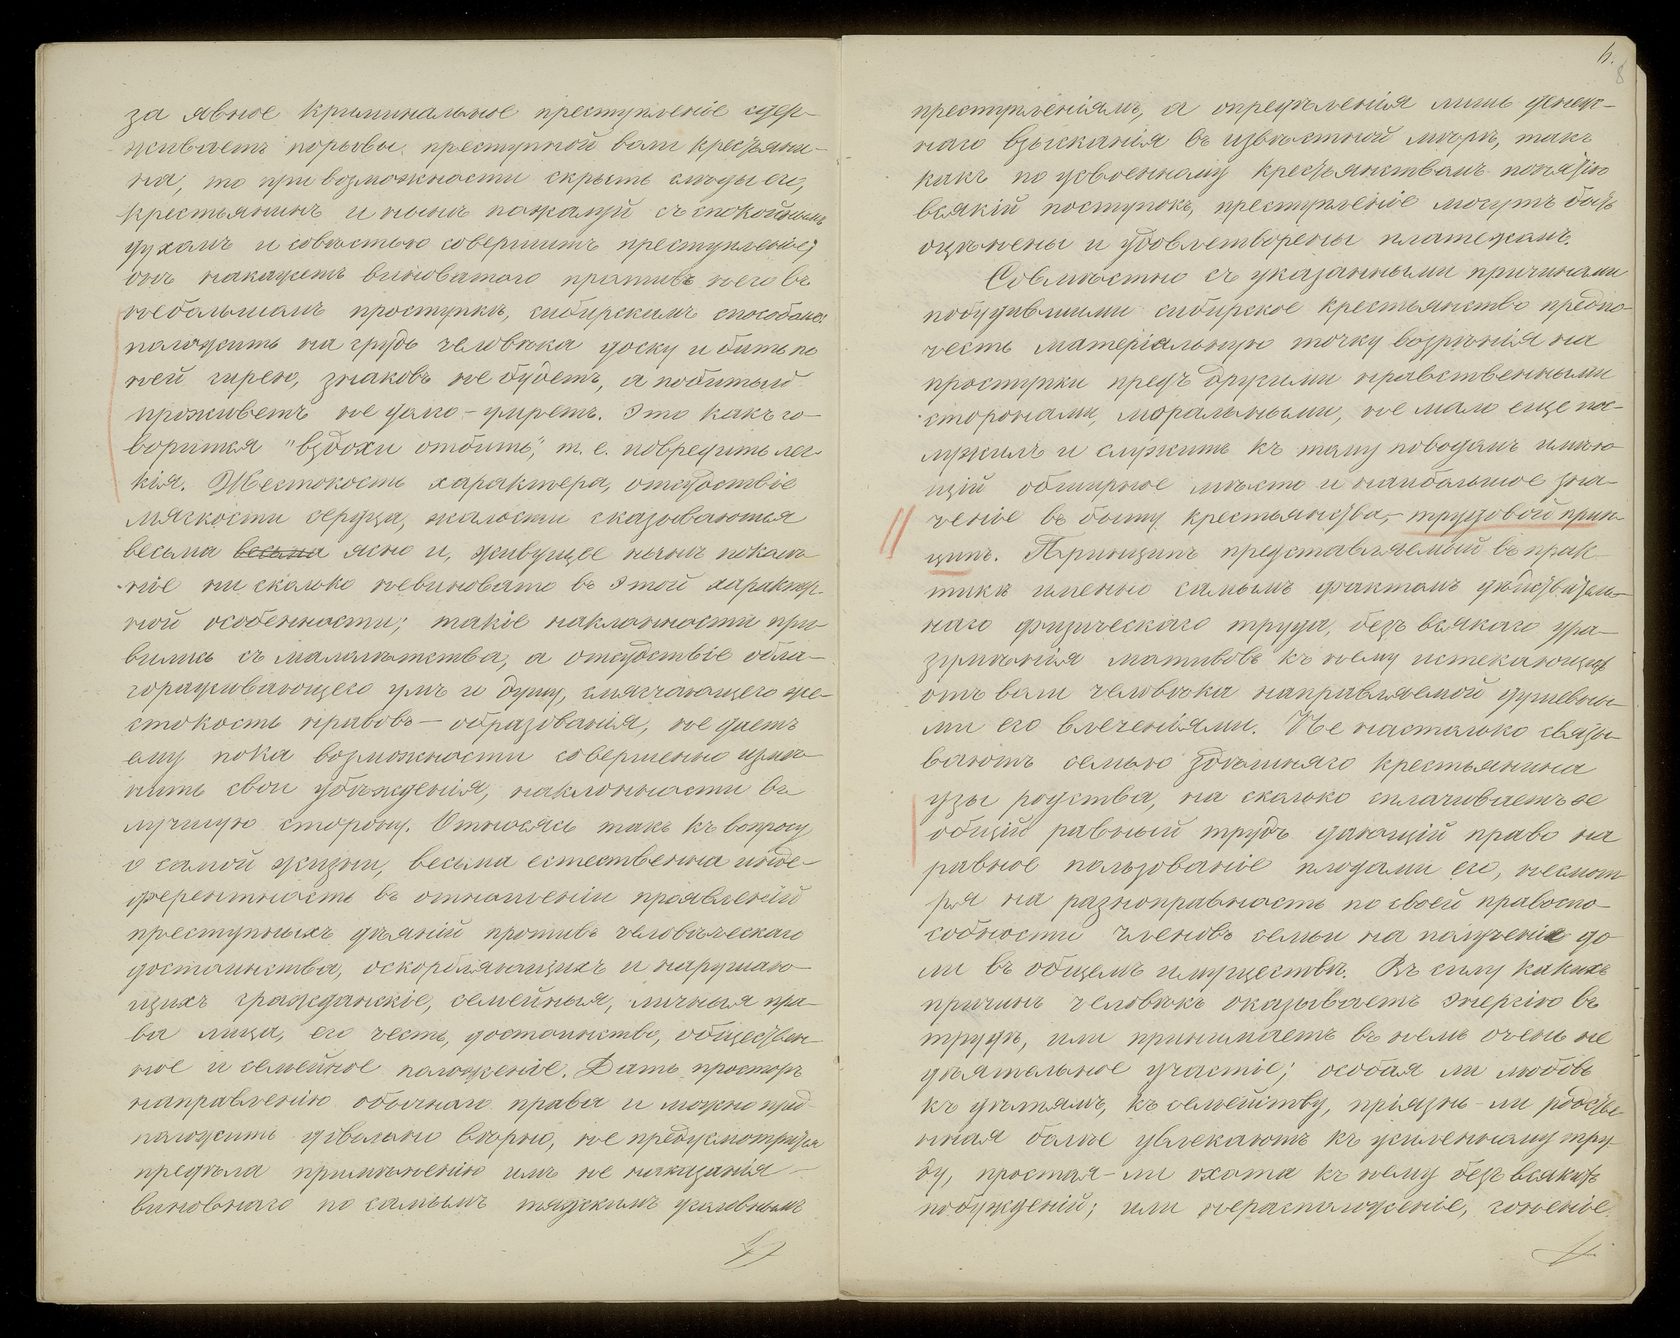 за явное криминальное преступленіе сдер-
живаетъ порывы преступной воли крестьяни-
на, то при возможности скрыть следы его,
крестьянинъ и нынѣ пожалуй съ спокойнымъ
духомъ и совѣстью совершитъ преступленіе;
онъ накажетъ виноватаго противъ него въ
небольшомъ проступкѣ, сибирскимъ способомъ:
положитъ на грудь человѣка доску и бить по
ней гирею, знаковъ не будетъ, а побитый
проживетъ не долго – умретъ. Это какъ го-
ворится "вздохи отбить", т. е. повредить лег-
кія. Жестокость характера, отсутствіе
мягкости сердца, жалости сказываются
весьма весьма ясно и, живущее нынѣ поколѣ-
ніе ни сколько невиновато въ этой характер-
ной особенности; такіе наклонности при-
вились съ малолѣтства, а отсутствіе обла-
гораживающего умъ и душу, смягчающего же-
стокость нравовъ – образованія, не даетъ
ему пока возможности совершенно измѣ-
нить свои убѣжденія, наклонности въ
лучшую сторону. Относясь такъ къ вопросу
о самой жизни, весьма естественна инде-
ферентность въ отношеніи проявленій
преступныхъ дѣяній противъ человѣческаго
достоинства, оскорбляющихъ и нарушаю-
щихъ гражданскіе, семейныя, личныя пра-
ва лица, его честь, достоинство, обществен-
ное и семейное положеніе. Дать просторъ
направленію обычнаго права и можно пред-
положить довольно вѣрно, не предусмотрится
предѣла примѣненію имъ не наказанія –
виновнаго по самымъ тяжкимъ уголовнымъ
6.
8
преступленіямъ, а опредѣленія лишь денеж-
наго взысканія въ извѣстной мѣрѣ, такъ
какъ по усвоенному крестьянствомъ понятію
всякій поступокъ, преступленіе могутъ быть
оцѣнены и удовлетворены платежомъ.
Совмѣстно съ указанными причинами
побудившими сибирское крестьянство предпо-
честь матеріальную точку воззрѣнія на
проступки предъ другими нравственными
сторонами, моральными, не мало еще пос-
лужилъ и служитъ къ тому поводомъ имѣю-
щій обширное мѣсто и наибольшое зна-
ченіе въ быту крестьянства, – трудовой прин-
ципъ. Принципъ представляемый въ прак-
тикѣ именно самымъ фактомъ дѣйствитель-
наго физическаго труда, безъ всякаго ура-
зумѣнія мотивовъ къ нему истекающихъ
отъ воли человѣка направляемой душевны-
ми его влеченіями. Не настолько связы-
ваютъ семью здѣшняго крестьянина
узы родства, на сколько сплачиваетъ ее
общій равный трудъ дающій право на
равное пользованіе плодами его, несмот-
ря на разноправность по своей правоспо-
собности членовъ семьи на полученіе до
ли въ общемъ имуществѣ. Въ силу какихъ
причинъ человѣкъ оказываетъ энергію въ
трудѣ, или принимаетъ въ немъ очень не
дѣятельное участіе; особая ли любовь
къ дѣтямъ, къ семейству, пріязнь-ли родстве-
нная болѣе увлекаютъ къ усиленному тру-
ду, простая-ли охота къ нему безъ всякихъ
побужденій; или нерасположеніе, гоненіе